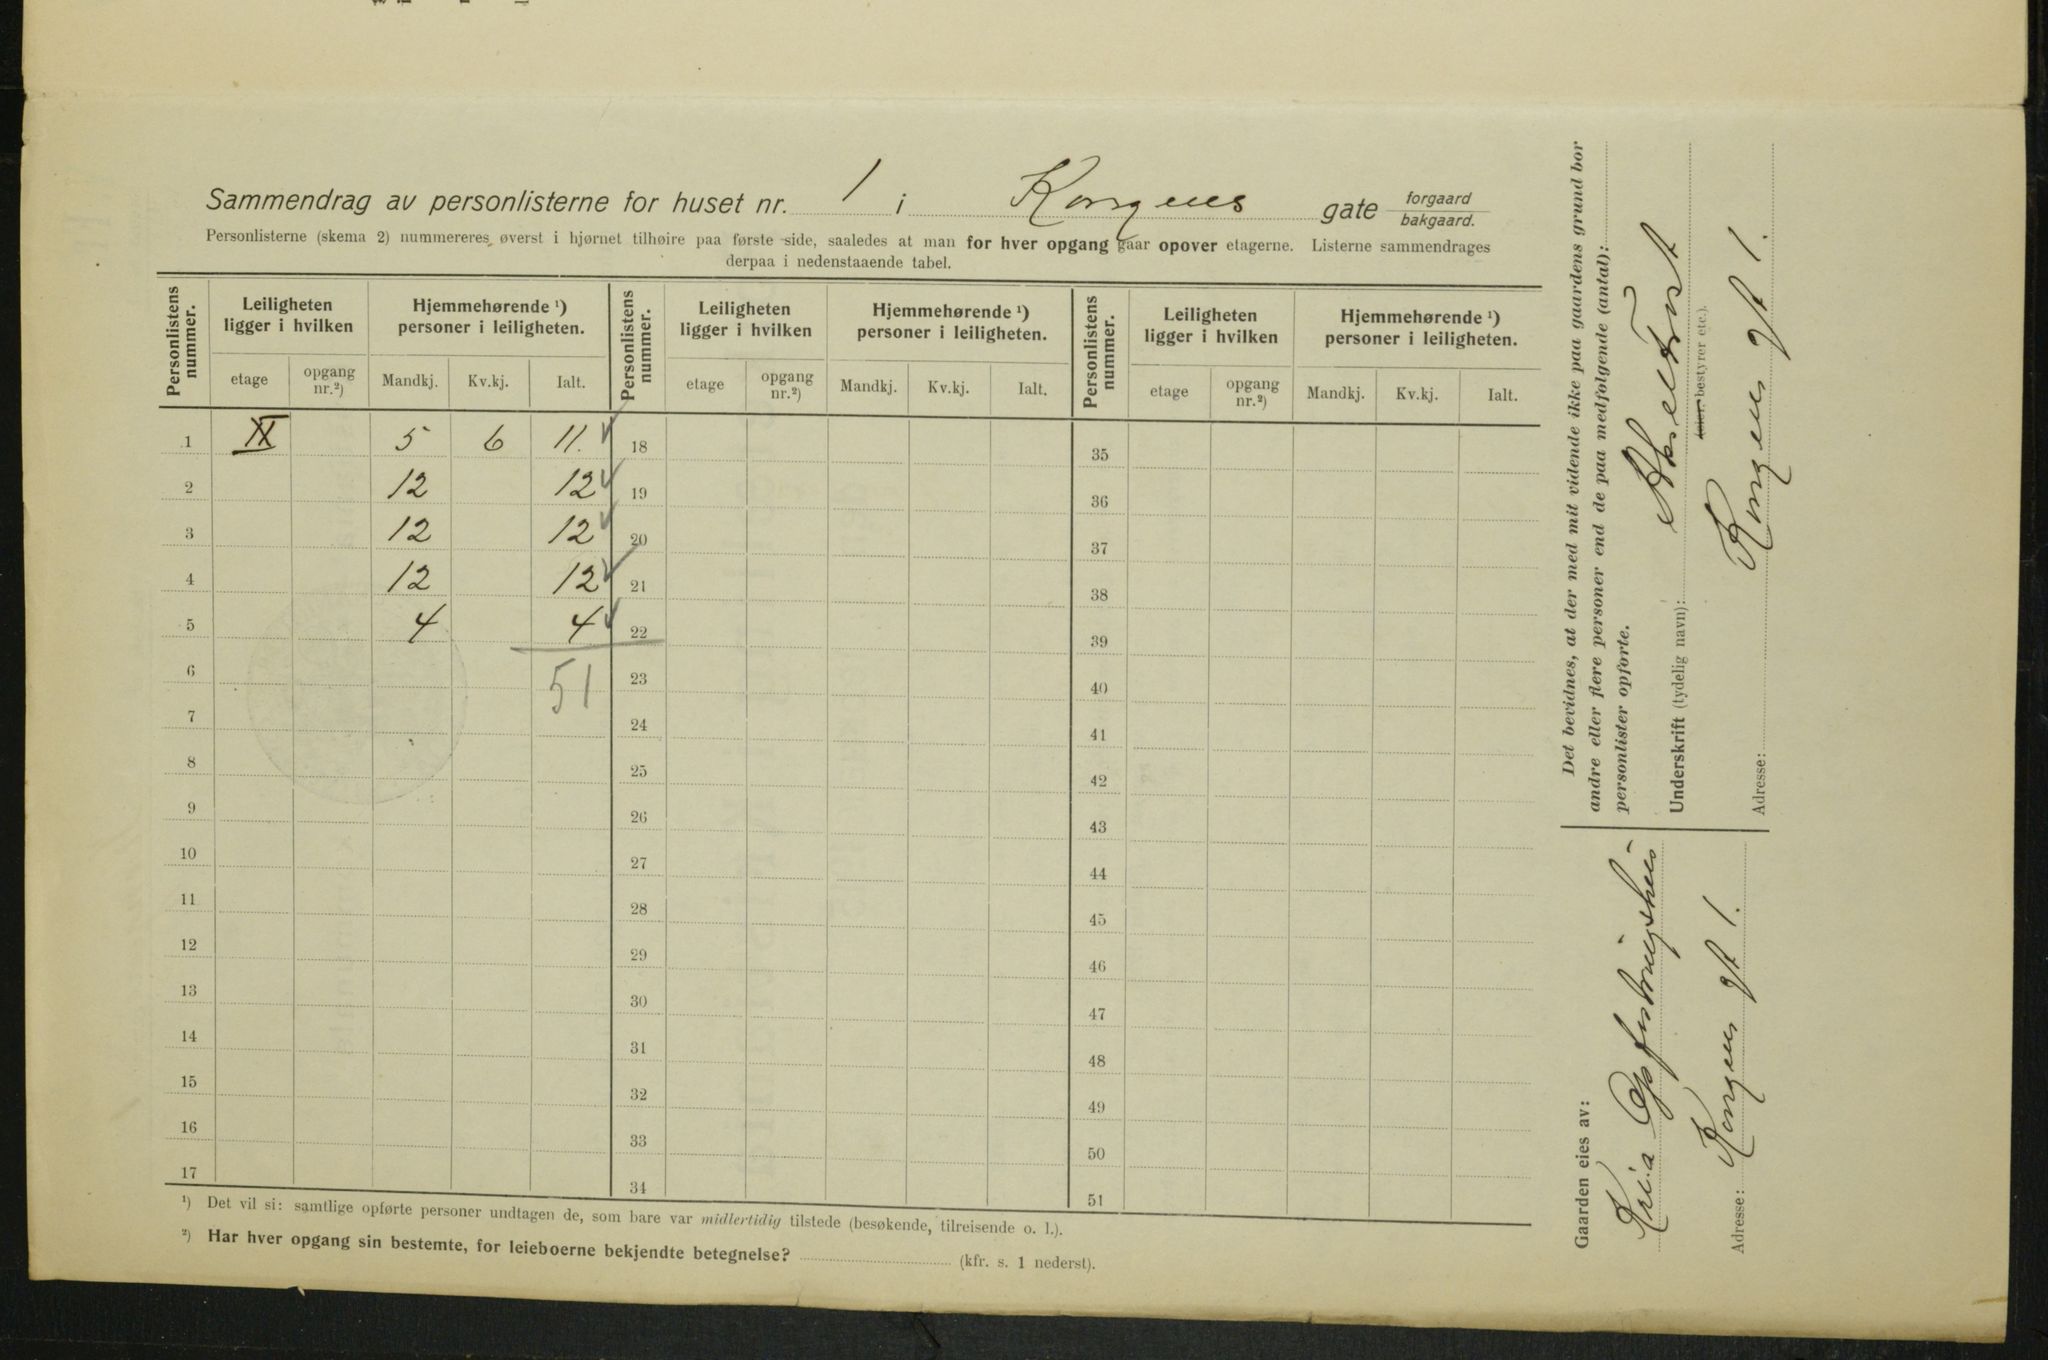 Sammendrag av personlisterne for huset nr. 1 i Kongens gate forgaard
bakgaard.
Personlisterne (skema 2) nummereres øverst i hjørnet tilhøire paa første side, saaledes at man for hver opgang gaar opover etagerne. Listerne sammendrages
derpaa i nedenstaaende tabel.
Personlistens nummer. Leiligheten ligger i hvilken Hjemmehørende ¹) personer i leiligheten. Personlistens nummer. Leiligheten ligger i hvilken Hjemmehørende ¹) personer i leiligheten. Personlistens nummer. Leiligheten ligger i hvilken Hjemmehørende ¹) personer i leiligheten.
etage opgang nr.²) Mandkj. Kv.kj. Ialt. etage opgang nr.²) Mandkj. Kv.kj. Ialt. etage opgang nr.²) Mandkj. Kv.kj. Ialt.
1 5 6 11. 18 35
2 12 12 19 36
3 12 12 20 37
4 12 12 21 38
5 4 4 22 39
6 51 23 40
7 24 41
8 25 42
9 26 43
10 27 44
11 28 45
12 29 46
13 30 47
14 31 48
15 32 49
16 33 50
17 34 51
¹) Det vil si: samtlige opførte personer undtagen de, som bare var midlertidig tilstede (besøkende, tilreisende o. l.).
²) Har hver opgang sin bestemte, for leieboerne bekjendte betegnelse? (kfr. s. 1 nederst).
Det bevidnes, at der med mit vidende ikke paa gaardens grund bor
andre eller flere personer end de paa medfølgende (antal):
personlister opførte.
Underskrift (tydelig navn):
eier. bestyrer etc.).
Adresse: Kongens gt 1.
Gaarden eies av:
Kria Opfostringshus
Adresse: Kongens gt 1.